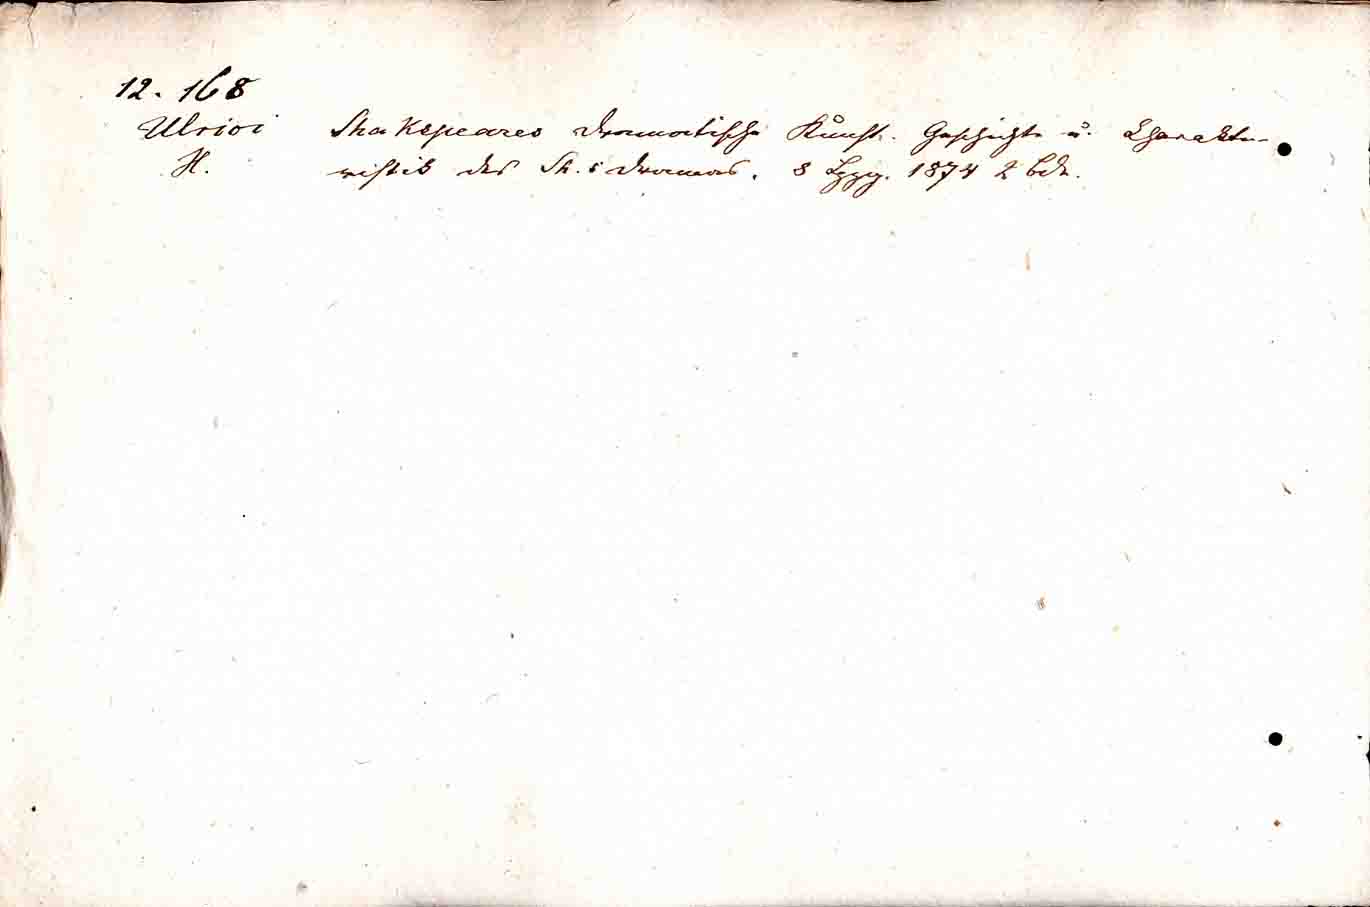 12. 168
Ulrici Shakspeares dramatische Kunst. Geschichte u. Charakte-
H. ristik des Sh.s Dramas. 8 Lpzg. 1874 2 bde.